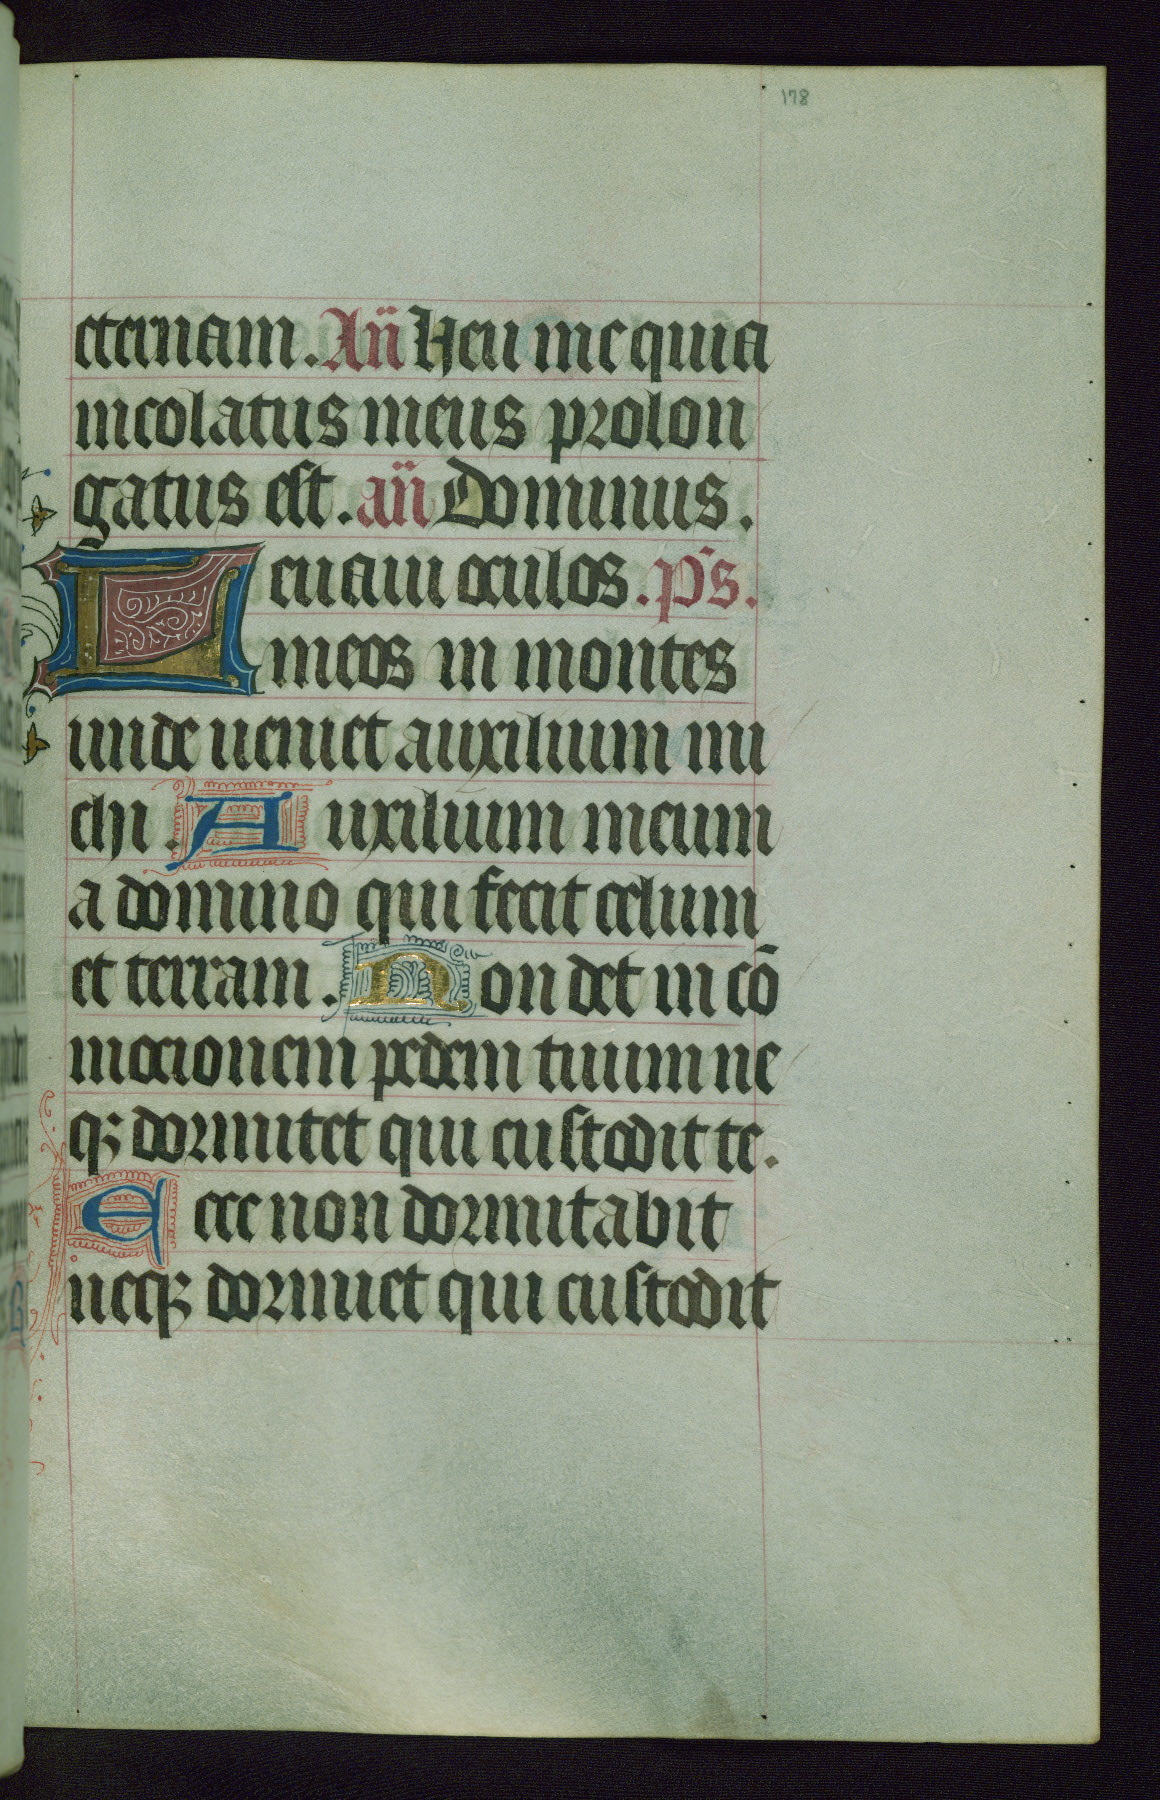 178
eternam. Añ Heu me quia
incolatus meus prolon
gatus est. añ Dominus.
Leuaui oculos. ps.
meos in montes
unde ueniet auxilium mi
chi. Auxilium meum
a domino qui fecit celum
et terram. Non det in cō
mocionem pedem tuum ne
qꝫ dormitet qui custodit te.
Ecce non dormitabit
neqꝫ dormiet qui custodit